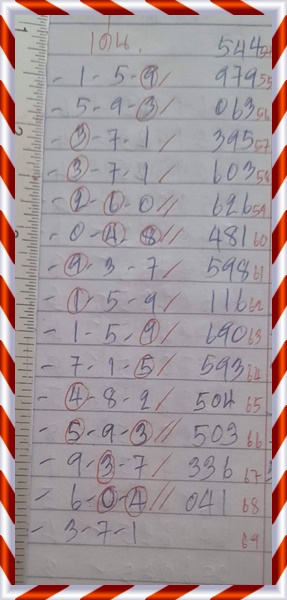 เด่น. 544
- 1-5-9/ 979 55
- 5-9-3/ 063 56
- 3-7-1/ 395 57
- 3-7-1/ 603 58
- 2-6-0// 626 59
- 0-4-8// 481 60
- 9-3-7/ 598 61
- 1-5-9/ 116 62
- 1-5-9/ 690 63
- 7-1-5/ 593 64
- 4-8-2/ 504 65
- 5-9-3// 503 66
- 9-3-7/ 336 67
- 6-0-4// 041 68
- 3-7-1 69